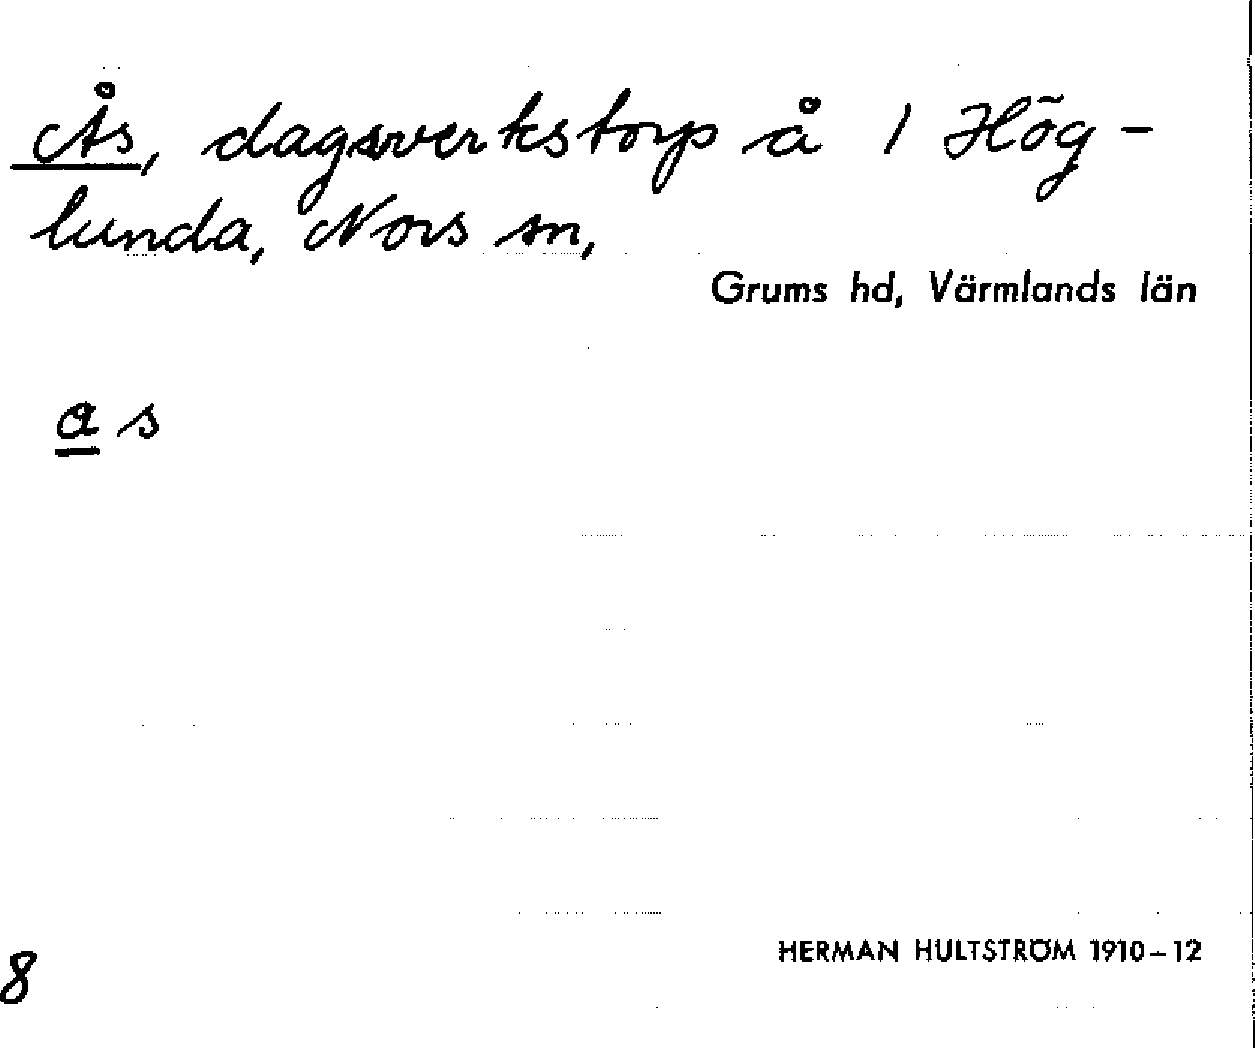 Ås, dagsverkstorp å 1 Hög-
lunda, Nors sn,
Grums hd, Värmlands län
a s
8
HERMAN HULTSTRÖM 1910-12